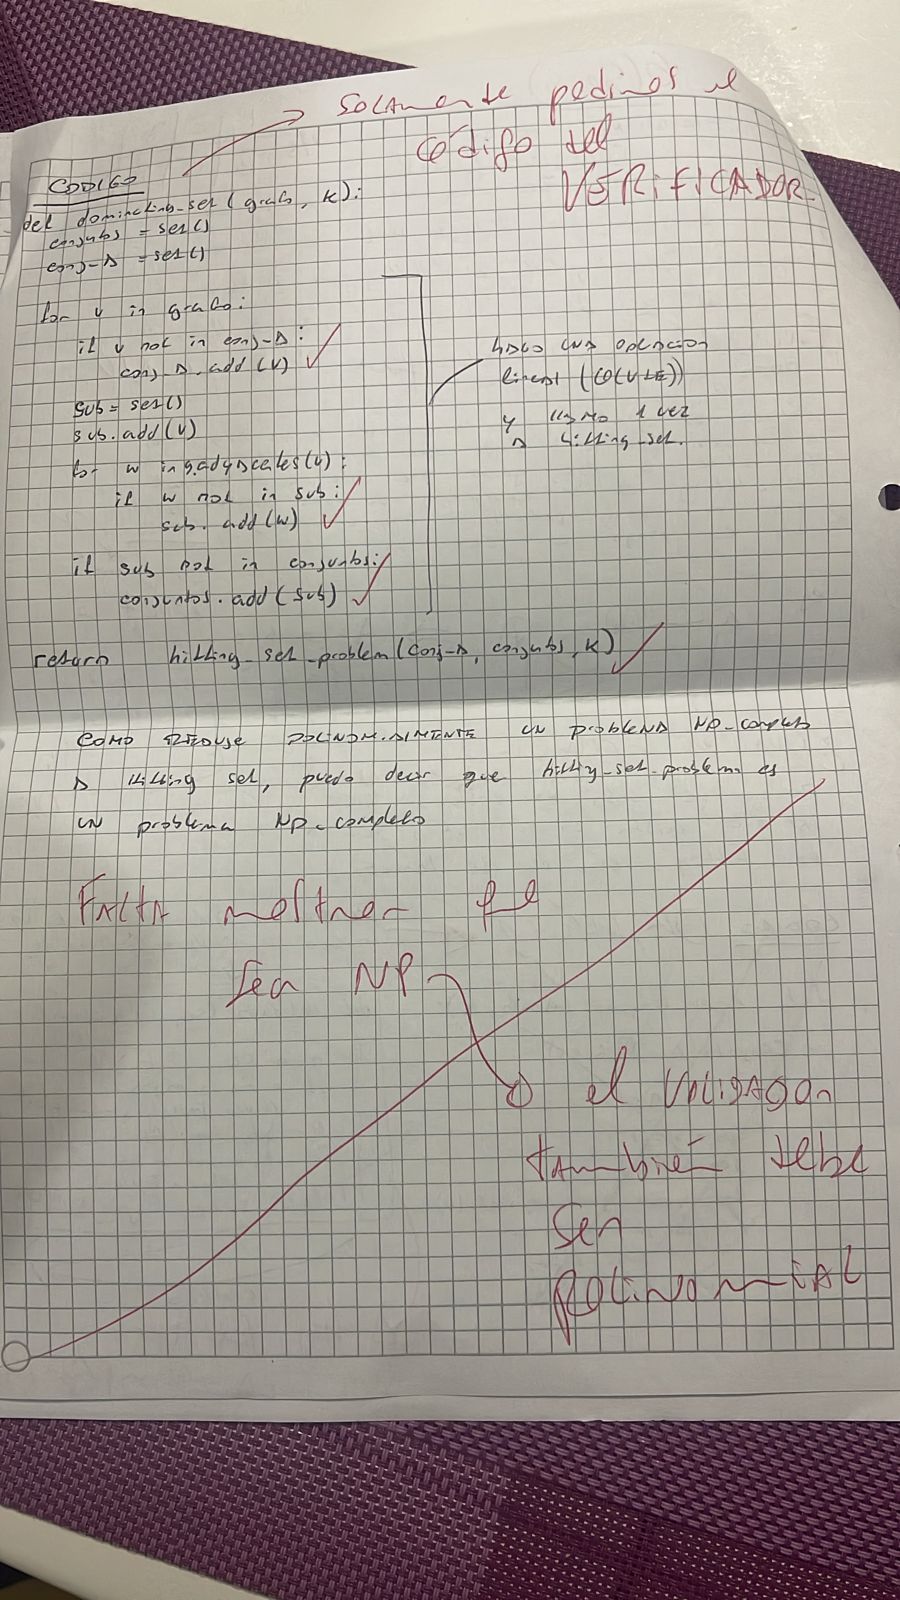 Solamente pedimos el
Código del
VERIFICADOR
CODIGO
def dominating_set(grafo, K):
conjuntos = set()
conj-A = set()
for v in grafo:
if v not in conj-A:
conj-A.add(v)
sub = set()
sub.add(v)
for w in g.adyacentes(v):
if w not in sub:
sub.add(w)
if sub not in conjuntos:
conjuntos.add(sub)
HAGO UNA OPERACION
lineal (O(V+E))
y llamo 1 vez
A hitting-set.
return hitting_set_problem(conj-A, conjuntos, K)
COMO REDUJE POLINOMIALMENTE UN PROBLEMA NP-completo
A Hitting set, puedo decir que hitting-set-problem es
UN problema NP-completo
FALTA mostrar que
sea NP
el VALIDADOR
también debe
ser
POLINOMIAL